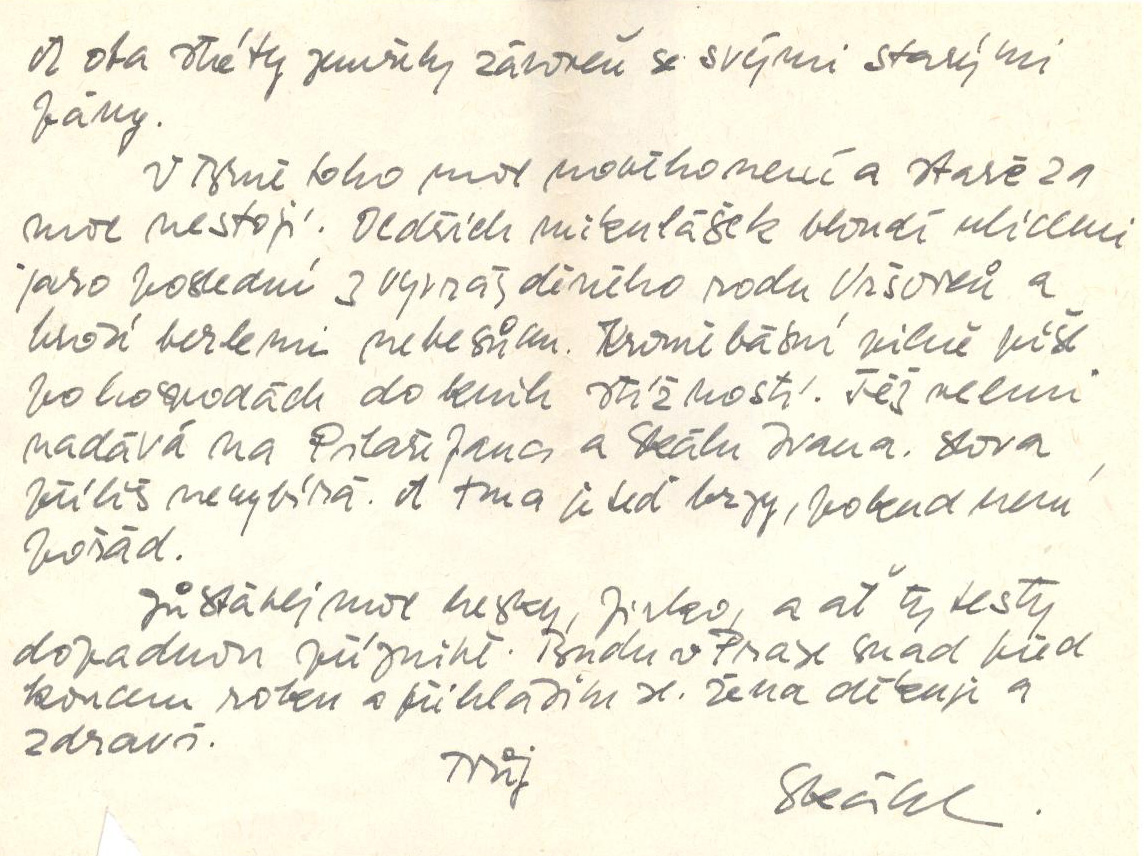 A oba státy zemřely zároveň se svými starými
pány.
V Brně toho moc nového není a staré za
moc nestojí. Oldřich Mikulášek bloudí ulicemi
jako poslední z vyvražděného rodu Vršovců a
hrozí berlemi nebesům. Kromě básní pilně píše
po hospodách do knih stížností. Též velmi
nadává na Pilaře Jana a Skálu Ivana. Slova
příliš nevybírá. A tma je teď brzy, pokud není
pořád.
Zůstávej moc hezky, Jirko, a ať ty testy
dopadnou příznivě. Budu v Praze snad před
koncem roku a přihlásím se. Žena děkuje a
zdraví.
Tvůj
Skácel.